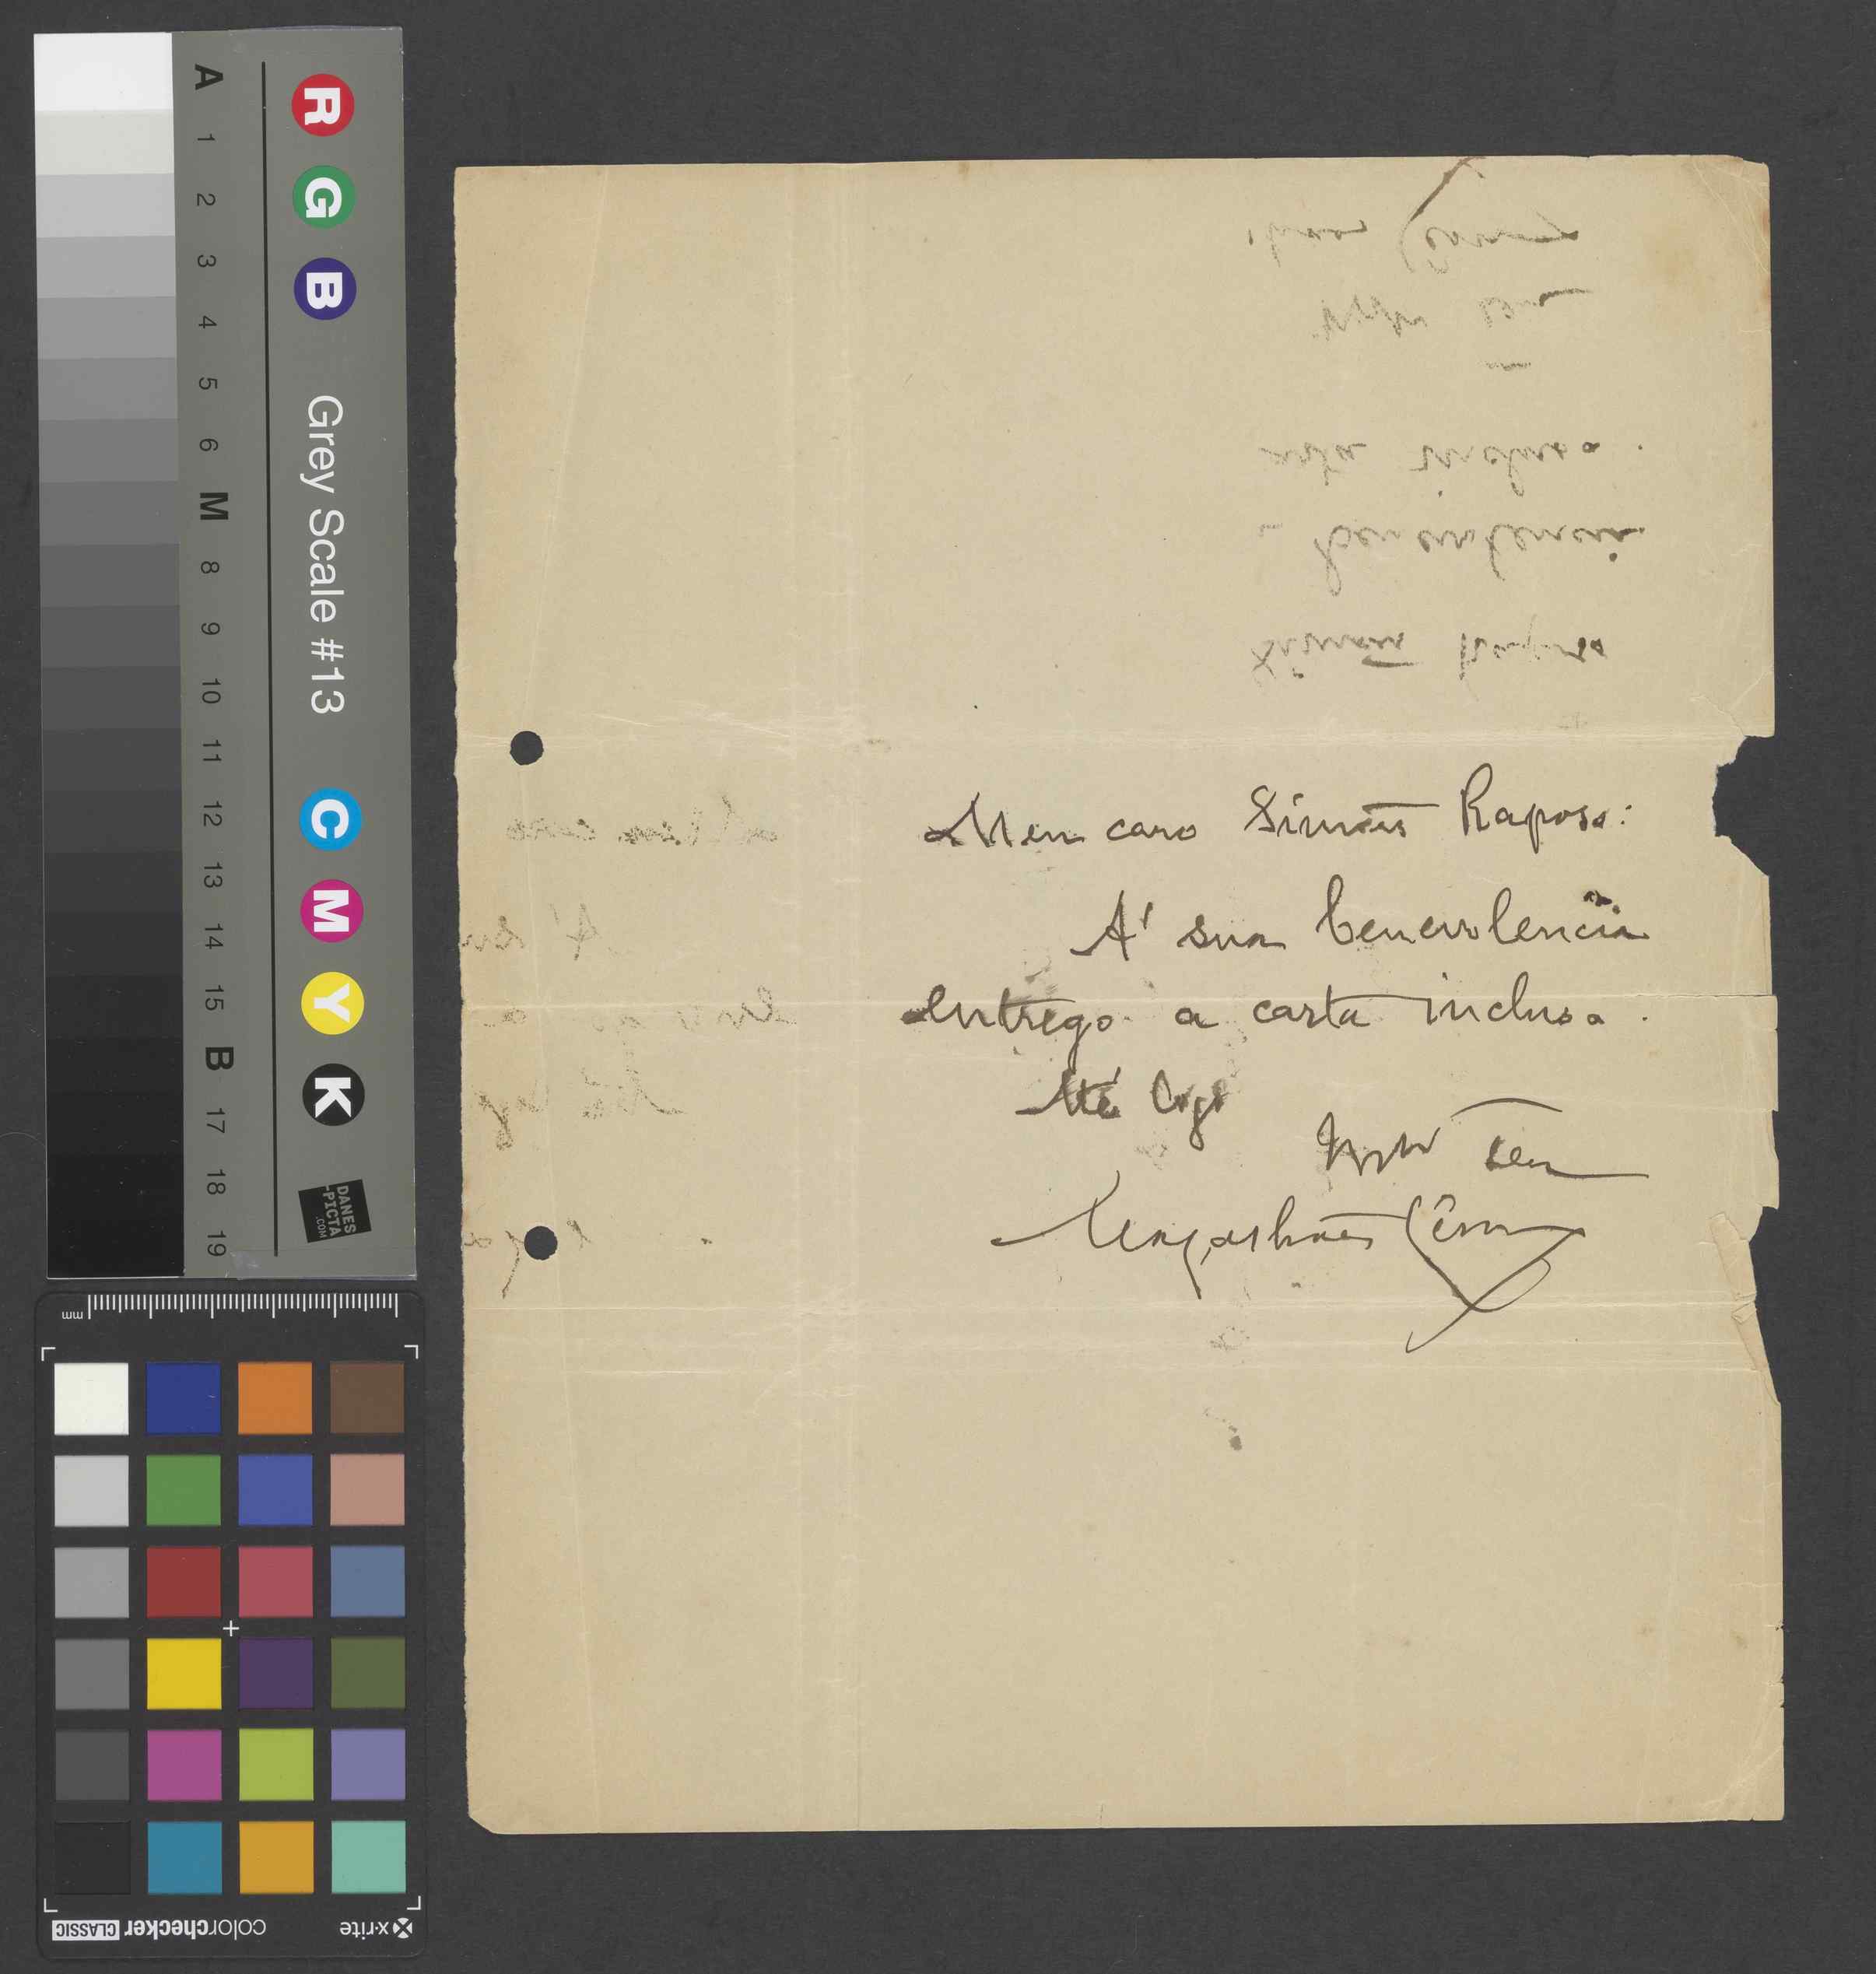 A
1
2
3
4
5
6
M
8
9
10
11
12
13
14
15
B
17
18
19
R G B Grey Scale #13 C M Y K
DANES
-PICTA
.COM
mm
colorchecker CLASSIC
x-rite
Meu caro Simões Raposo:
A' sua benevolencia
entrego a carta inclusa.
Até logo
seu
Magalhães Lima